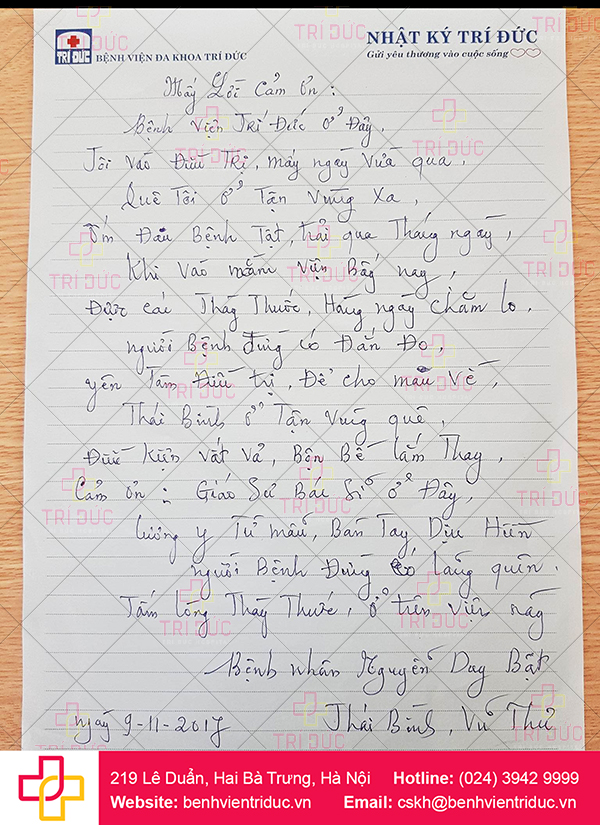 TRÍ ĐỨC
BỆNH VIỆN ĐA KHOA TRÍ ĐỨC
NHẬT KÝ TRÍ ĐỨC
Gửi yêu thương vào cuộc sống
Mấy Lời Cảm Ơn :
Bệnh Viện Trí Đức Ở Đây,
Tôi Vào Điều Trị, mấy ngày Vừa qua,
Quê Tôi Ở Tận Vùng Xa,
Ốm Đau Bệnh Tật, trải qua Tháng ngày,
Khi Vào nằm viện Bấy nay,
Được các Thầy Thuốc, Hàng ngày Chăm lo,
người Bệnh đừng có Đắn Đo,
yên Tâm Điều trị, Để cho mau Về,
Thái Bình Ở Tận Vùng quê,
Điều Kiện Vất Vả, Bộn Bề Lắm Thay,
Cảm Ơn : Giáo Sư Bác Sĩ Ở Đây,
Lương y Từ mẫu, Bàn Tay Dịu Hiền
người Bệnh Đừng có lãng quên.
Tấm lòng Thầy Thuốc, Ở trên Viện này
Bệnh nhân Nguyễn Duy Bật
ngày 9-11-2017 Thái Bình, Vũ Thư
219 Lê Duẩn, Hai Bà Trưng, Hà Nội Hotline: (024) 3942 9999
Website: benhvientriduc.vn Email: cskh@benhvientriduc.vn